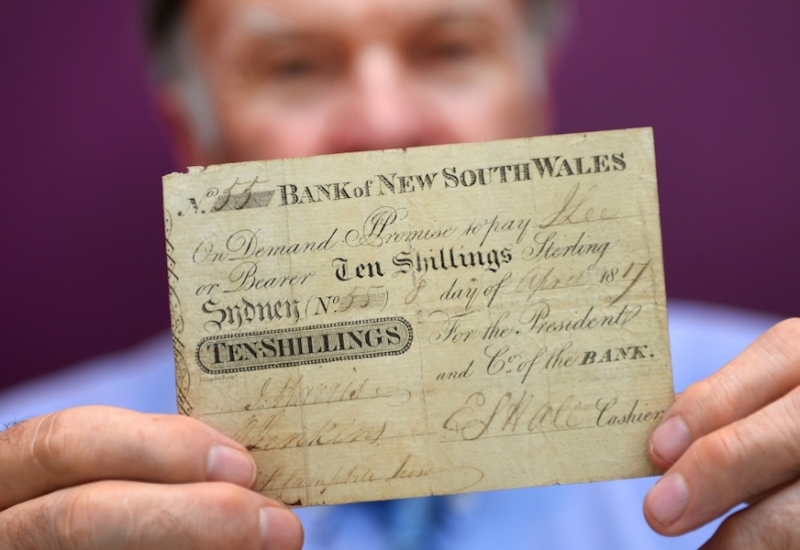 No. 55 BANK of NEW SOUTH WALES
On Demand I Promise to pay
or Bearer Ten Shillings Sterling
Sydney (No. 55) 8 day of April 1817
TEN-SHILLINGS For the President
and Co. of the BANK.
J. Harris
Jenkins E S Hall Cashier